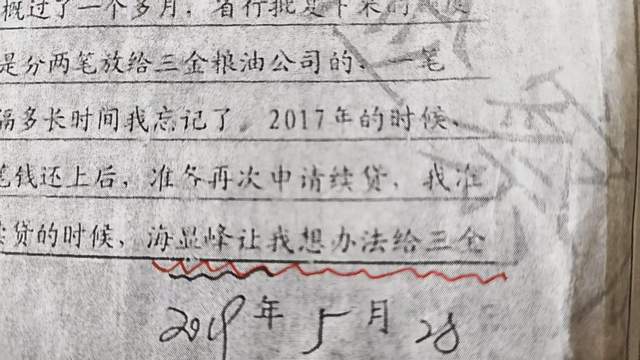 概过了一个多月，省行批复下来的
是分两笔放给三金粮油公司的、一笔
隔多长时间我忘记了。2017年的时候、
笔钱还上后，准备再次申请续贷，我准
贷的时候，海显峰让我想办法给三金
2019年5月28